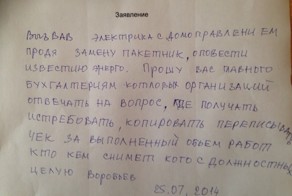 Заявление
Вызвав электрика с домоправлением
продя замену пакетник, оповести
известию энерго. Прошу вас главного
бухгалтерия которых организаций
отвечать на вопрос, где получать
истребовать, копировать переписы
чек за выполненный объем работ
кто кем снимет кого с должностных
целую Воробьев
25.07.2014